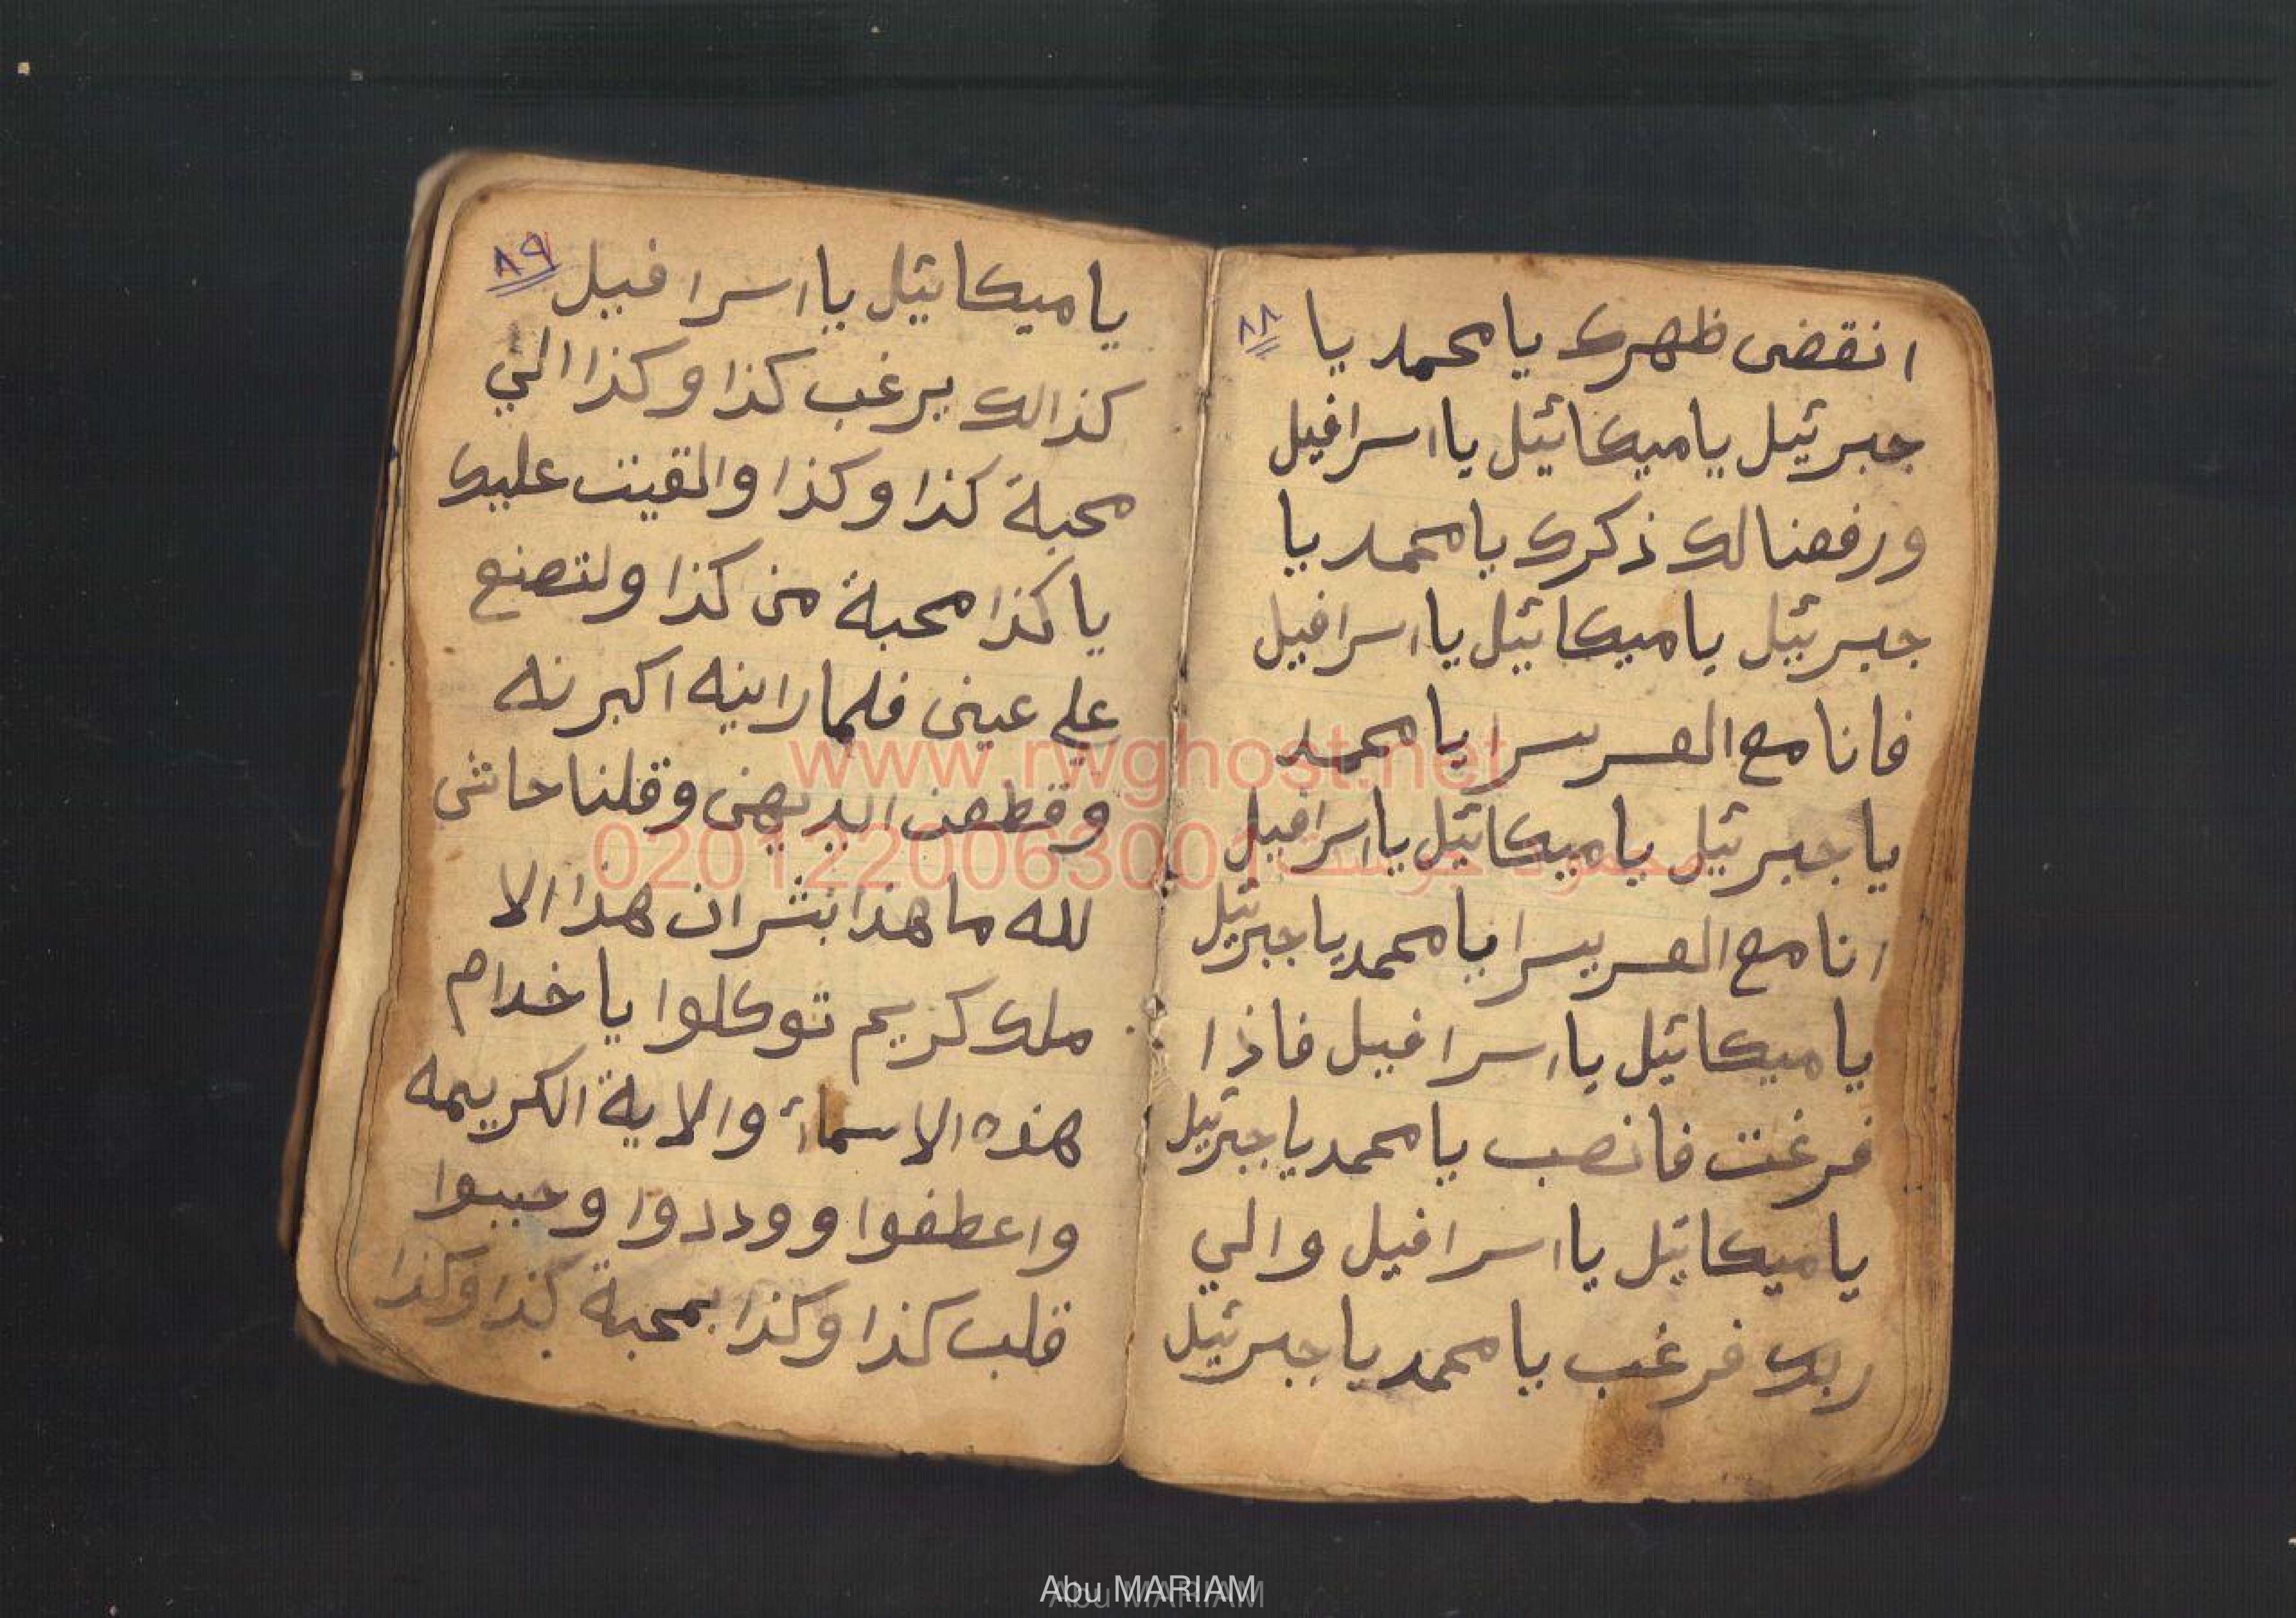 ٨٨
انقضى ظهرك يا محمد يا
جبرئيل يا ميكائيل يا اسرافيل
ورفعنا لك ذكرك يا محمد يا
جبرئيل يا ميكائيل يا اسرافيل
فانا مع العسر يسرا يا محمد
يا جبرئيل يا ميكائيل يا اسرافيل
انا مع العسر يسرا يا محمد يا جبرئيل
يا ميكائيل يا اسرافيل فاذا
فرغت فانصب يا محمد يا جبرئيل
يا ميكائيل يا اسرافيل والي
ربك فرغب يا محمد يا جبرئيل
٨٩
يا ميكائيل يا اسرافيل
كذالك يرغب كذا وكذا الي
محبة كذا وكذا والقيت عليك
يا كذا محبة من كذا ولتصنع
علي عيني فلما راينه اكبرنه
وقطعن ايديهن وقلنا حاشى
لله ما هذا بشرا ان هذا الا
ملك كريم توكلوا يا خدام
هذه الاسماء والاية الكريمه
واعطفوا وودوا وحببوا
قلب كذا وكذا بمحبة كذا وكذا
www.rwghost.net
محمود جوست 02012200630001
Abu MARIAM